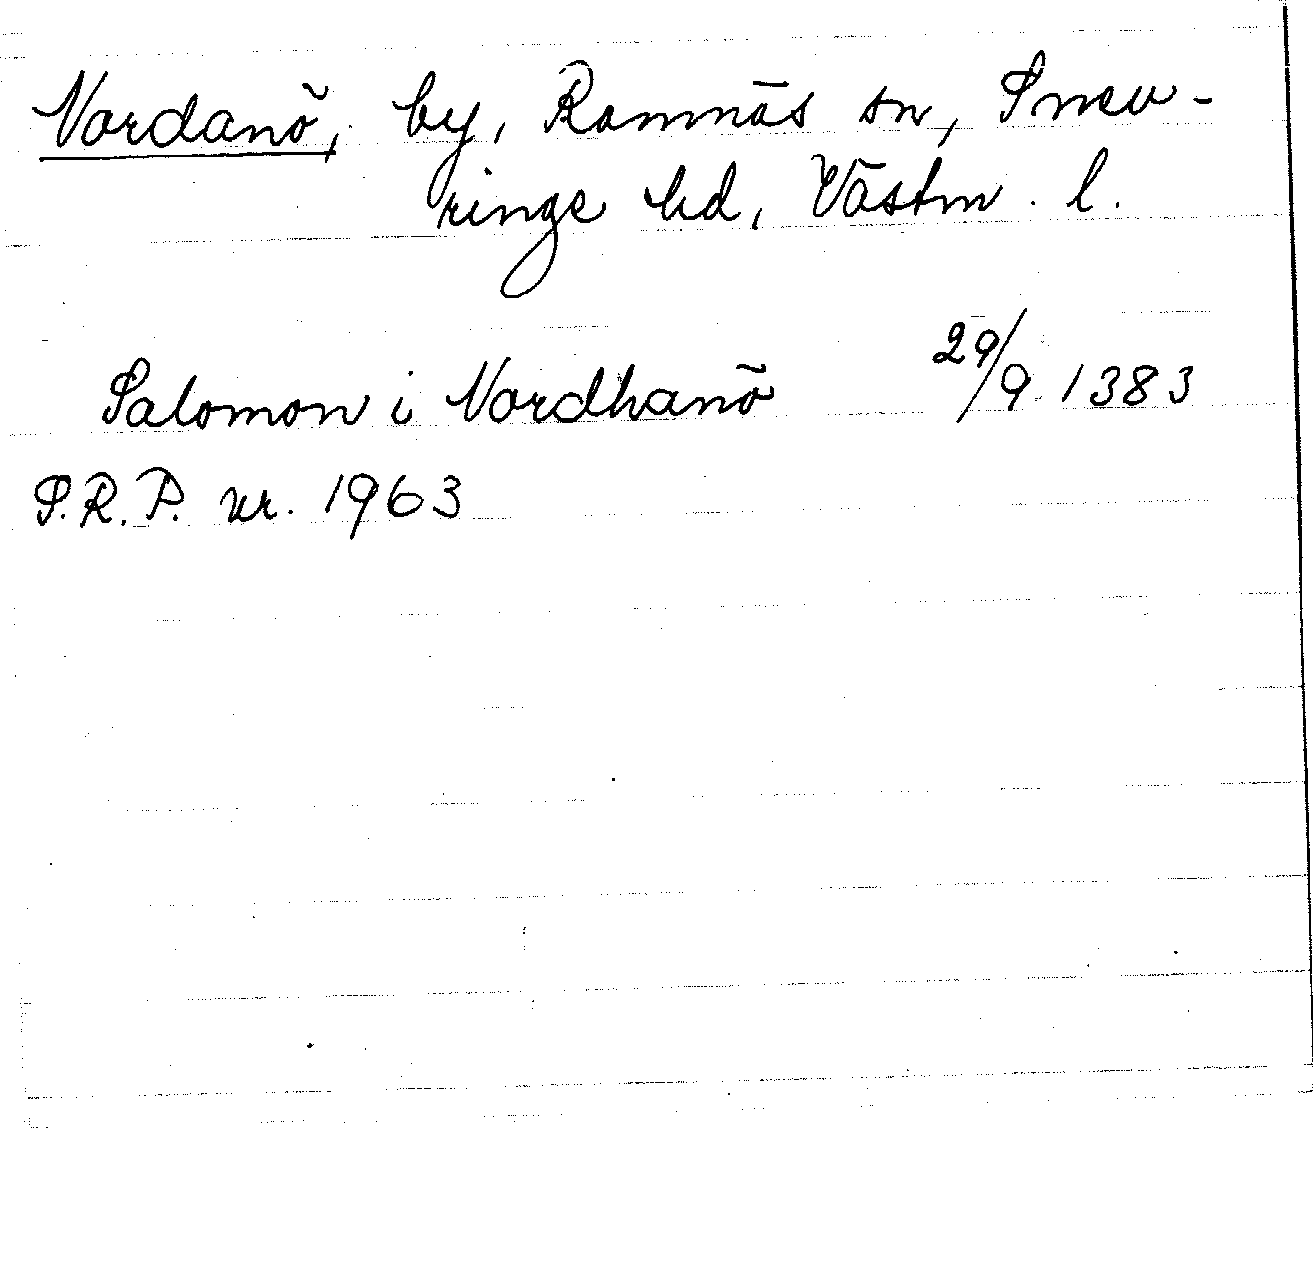 Nordanö, by, Ramnäs sn, Snev-
ringe hd, Västm. l.
Salomon i Nordhanö 29/9 1383
S.R.P. nr. 1963